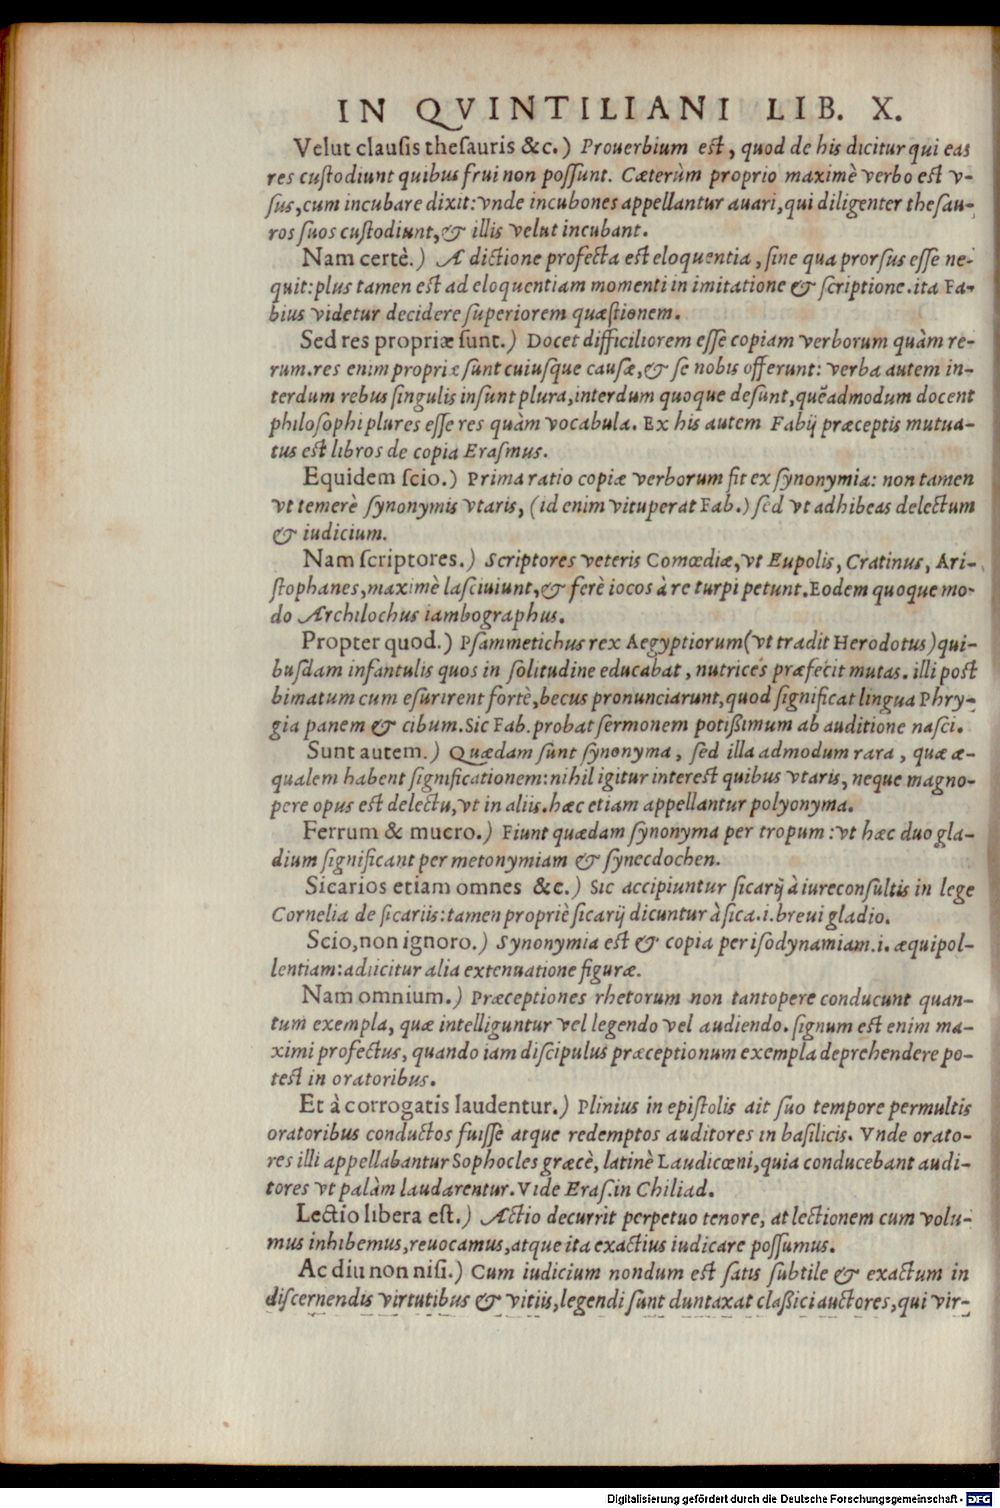 IN QVINTILIANI LIB. X.
Velut clausis thesauris &c.) Prouerbium est, quod de his dicitur qui eas
res custodiunt quibus frui non possunt. Cæterùm proprio maximè verbo est v-
sus, cum incubare dixit: vnde incubones appellantur auari, qui diligenter thesau-
ros suos custodiunt, & illis velut incubant.
Nam certè.) A dictione profecta est eloquentia, sine qua prorsus esse ne-
quit: plus tamen est ad eloquentiam momenti in imitatione & scriptione. ita Fa-
bius videtur decidere superiorem quæstionem.
Sed res propriæ sunt.) Docet difficiliorem esse copiam verborum quàm re-
rum. res enim propriæ sunt cuiusque causæ, & se nobis offerunt: verba autem in-
terdum rebus singulis insunt plura, interdum quoque desunt, quẽadmodum docent
philosophi plures esse res quàm vocabula. Ex his autem Fabij præceptis mutua-
tus est libros de copia Erasmus.
Equidem scio.) Prima ratio copiæ verborum fit ex synonymia: non tamen
vt temerè synonymis vtaris, (id enim vituperat Fab.) sed vt adhibeas delectum
& iudicium.
Nam scriptores.) Scriptores veteris Comœdiæ, vt Eupolis, Cratinus, Ari-
stophanes, maximè lasciuiunt, & ferè iocos à re turpi petunt. Eodem quoque mo-
do Archilochus iambographus.
Propter quod.) Psammetichus rex Aegyptiorum (vt tradit Herodotus) qui-
busdam infantulis quos in solitudine educabat, nutrices præfecit mutas. illi post
bimatum cum esurirent fortè, becus pronunciarunt, quod significat lingua Phry-
gia panem & cibum. Sic Fab. probat sermonem potißimum ab auditione nasci.
Sunt autem.) Quædam sunt synonyma, sed illa admodum rara, quæ æ-
qualem habent significationem: nihil igitur interest quibus vtaris, neque magno-
pere opus est delectu, vt in aliis. hæc etiam appellantur polyonyma.
Ferrum & mucro.) Fiunt quædam synonyma per tropum: vt hæc duo gla-
dium significant per metonymiam & synecdochen.
Sicarios etiam omnes &c.) Sic accipiuntur sicarij à iureconsultis in lege
Cornelia de sicariis: tamen propriè sicarij dicuntur à sica .i. breui gladio.
Scio, non ignoro.) Synonymia est & copia per isodynamiam .i. æquipol-
lentiam: adiicitur alia extenuatione figuræ.
Nam omnium.) Præceptiones rhetorum non tantopere conducunt quan-
tum exempla, quæ intelliguntur vel legendo vel audiendo. signum est enim ma-
ximi profectus, quando iam discipulus præceptionum exempla deprehendere po-
test in oratoribus.
Et à corrogatis laudentur.) Plinius in epistolis ait suo tempore permultis
oratoribus conductos fuisse atque redemptos auditores in basilicis. Vnde orato-
res illi appellabantur Sophocles græcè, latinè Laudicœni, quia conducebant audi-
tores vt palàm laudarentur. Vide Eras. in Chiliad.
Lectio libera est.) Actio decurrit perpetuo tenore, at lectionem cum volu-
mus inhibemus, reuocamus, atque ita exactius iudicare possumus.
Ac diu non nisi.) Cum iudicium nondum est satis subtile & exactum in
discernendis virtutibus & vitiis, legendi sunt duntaxat claßici auctores, qui vir-
Digitalisierung gefördert durch die Deutsche Forschungsgemeinschaft - DFG